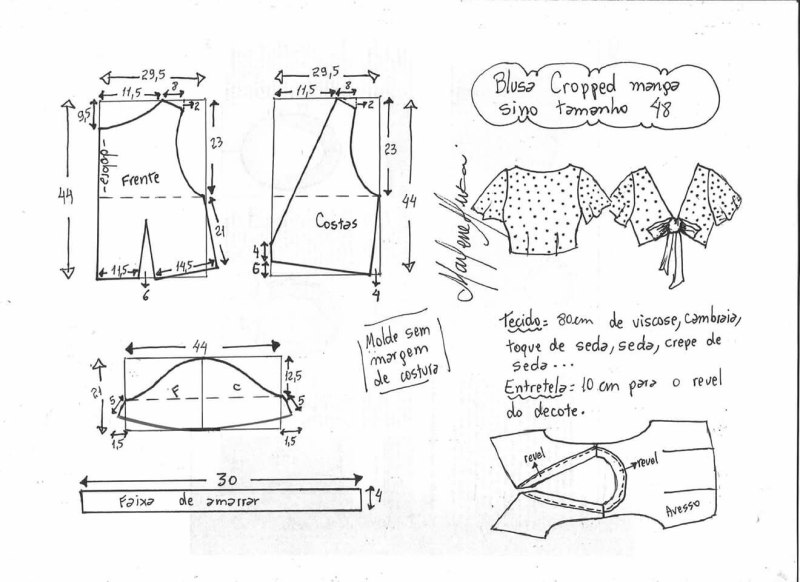 29,5
11,5
8
2
9,5
23
-dobra-
Frente
44
21
11,5
14,5
6
29,5
11,5
8
2
23
44
Costas
4
6
4
Blusa Cropped manga
sino tamanho 48
Marlene Mukai
44
21
12,5
F
C
5
5
1,5
1,5
Molde sem
margem
de costura
Tecido= 80cm de viscose, cambraia,
toque de seda, seda, crepe de
seda...
Entretela= 10 cm para o revel
do decote.
30
Faixa de amarrar
4
revel
revel
Avesso